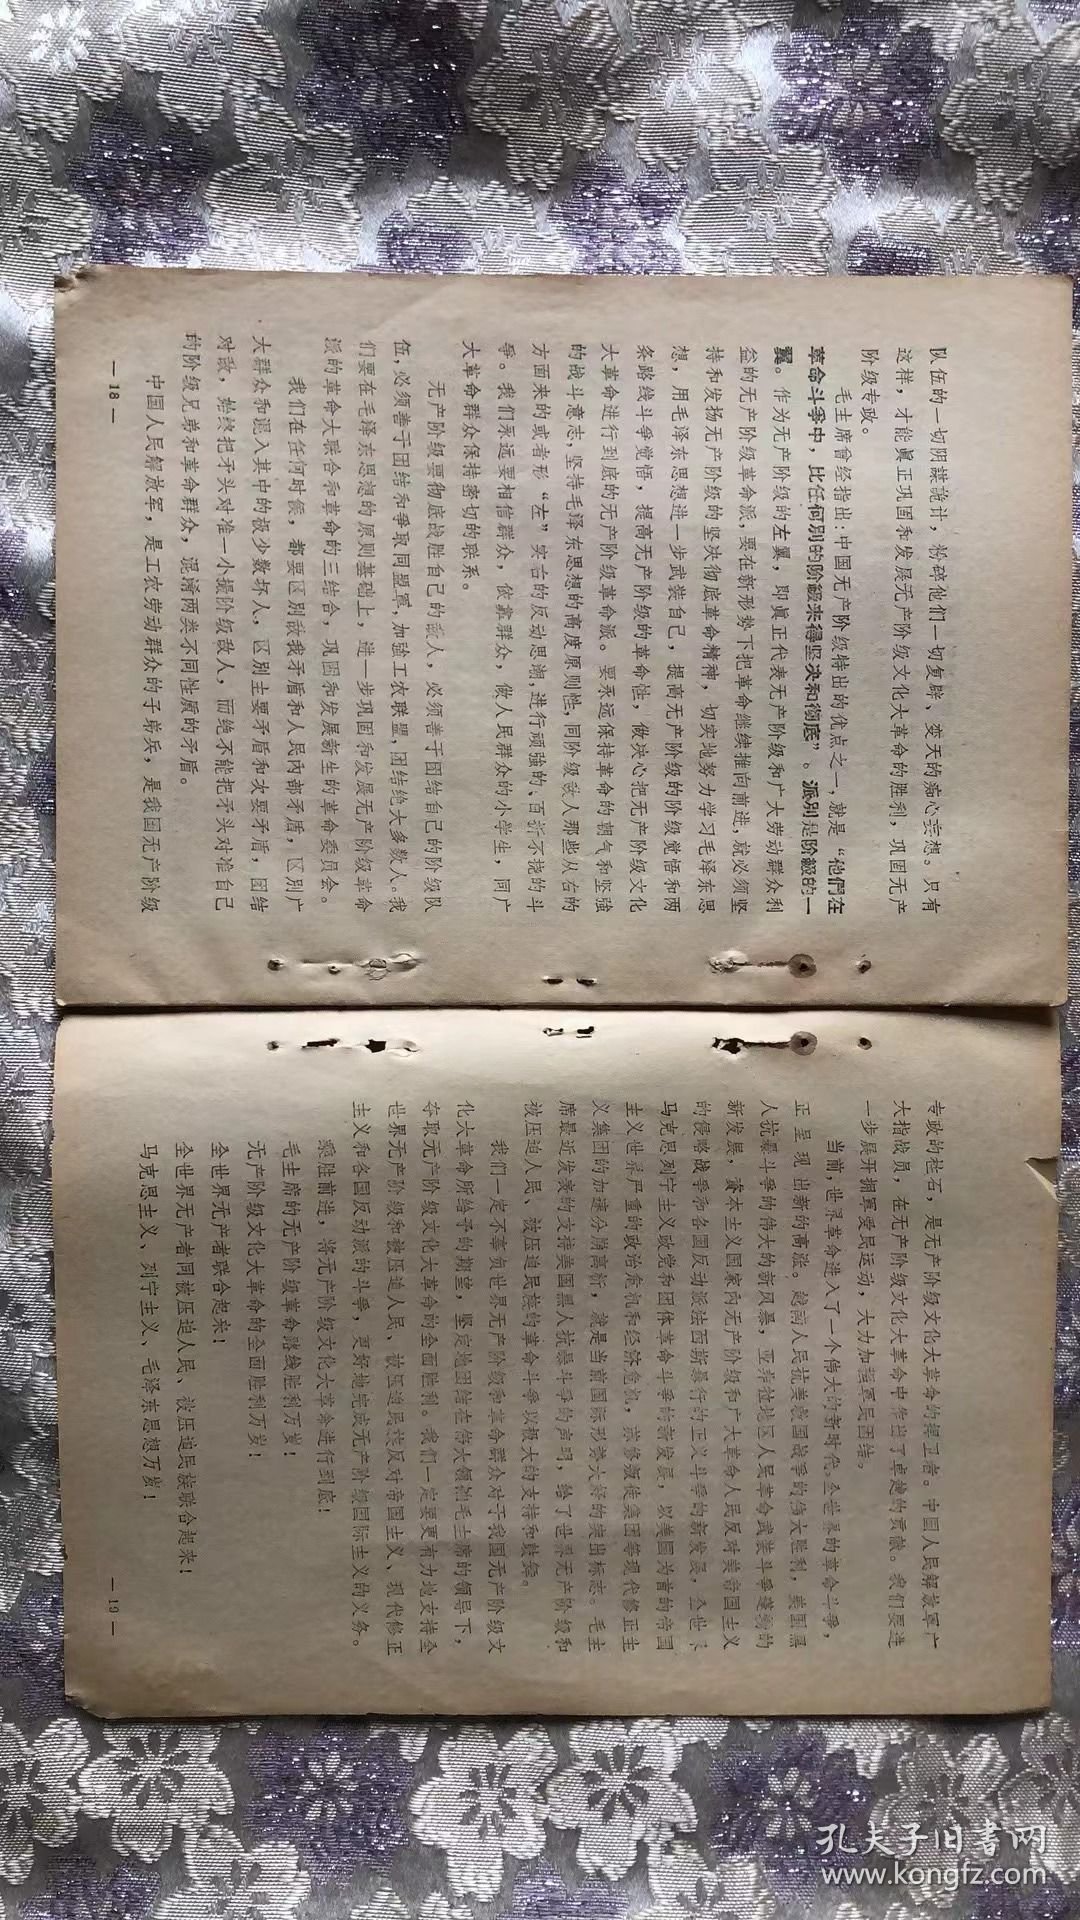 队伍的一切阴謀詭计，粉碎他们一切复辟、变天的痴心妄想。只有
这样，才能眞正巩固和发展无产阶级文化大革命的胜利，巩固无产
阶级专政。
毛主席曾经指出：中国无产阶级特出的优点之一，就是“他們在
革命斗争中，比任何別的阶級来得坚决和彻底”。派別是阶級的一
翼。作为无产阶级的左翼，即眞正代表无产阶级和广大劳动群众利
益的无产阶级革命派，要在新形势下把革命继续推向前进，就必须坚
持和发扬无产阶级的坚决彻底革命精神，切实地努力学习毛泽东思
想，用毛泽东思想进一步武装自己，提高无产阶级的阶级觉悟和两
条路线斗争觉悟，提高无产阶级的革命性，做决心把无产阶级文化
大革命进行到底的无产阶级革命派。要永远保持革命的朝气和坚強
的战斗意志，坚持毛泽东思想的高度原则性，同阶级敌人那些从右的
方面来的或者形“左”实右的反动思潮，进行顽強的、百折不挠的斗
争。我们永远要相信群众，依靠群众，做人民群众的小学生，同广
大革命群众保持密切的联系。
无产阶级要彻底战胜自己的敌人，必须善于团结自己的阶级队
伍，必须善于团结和争取同盟軍，加強工农联盟，团结绝大多数人。我
们要在毛泽东思想的原则基础上，进一步巩固和发展无产阶级革命
派的革命大联合和革命的三结合，巩固和发展新生的革命委员会。
我们在任何时候，都要区别敌我矛盾和人民內部矛盾，区别广
大群众和混入其中的极少数坏人，区别主要矛盾和次要矛盾，团结
对敌，始终把矛头对准一小撮阶级敌人，而绝不能把矛头对准自己
的阶级兄弟和革命群众，混淆两类不同性质的矛盾。
中国人民解放军，是工农劳动群众的子弟兵，是我国无产阶级
—18—
专政的柱石，是无产阶级文化大革命的捍卫者。中国人民解放军广
大指战员，在无产阶级文化大革命中作出了卓越的贡献。我们要进
一步展开拥軍爱民运动，大力加強軍民团结。
当前，世界革命进入了一个伟大的新时代。全世界的革命斗争，
正呈现出新的高涨。越南人民抗美救国战爭的伟大胜利，美国黑
人抗暴斗争的伟大的新风暴，亚非拉地区人民革命武装斗争蓬勃的
新发展，资本主义国家內无产阶级和广大革命人民反对美帝国主义
的侵略战争和各国反动派法西斯暴行的正义斗争的新发展，全世界
马克思列宁主义政党和团体革命斗争的新发展，以美国为首的帝国
主义世界严重的政治危机和经济危机，苏修叛徒集团等现代修正主
义集团的加速分崩离析，就是当前国际形势大好的突出标志。毛主
席最近发表的支持美国黑人抗暴斗争的声明，给了世界无产阶级和
被压迫人民、被压迫民族的革命斗争以极大的支持和鼓舞。
我们一定不辜负世界无产阶级和革命群众对于我国无产阶级文
化大革命所给予的期望，坚定地团结在伟大领袖毛主席的领导下，
夺取无产阶级文化大革命的全面胜利。我们一定要更有力地支持全
世界无产阶级和被压迫人民、被压迫民族反对帝国主义、现代修正
主义和各国反动派的斗争，更好地完成无产阶级国际主义的义务。
乘胜前进，将无产阶级文化大革命进行到底！
毛主席的无产阶级革命路线胜利万岁！
无产阶级文化大革命的全面胜利万岁！
全世界无产者联合起来！
全世界无产者同被压迫人民、被压迫民族联合起来！
马克思主义、列宁主义、毛泽东思想万岁！
—19—
孔夫子旧书网
www.kongfz.com